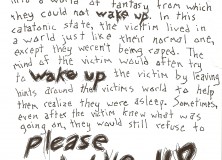 into a world of fantasy from which
they could not wake up. In this
catatonic state, the victim lived in
a world just like their normal one,
except they weren't being raped. The
mind of the victim would often try
to wake up the victim by leaving
hints around the victims world to help
them realize they were asleep. Sometimes,
even after the victim knew what was
going on, they would still refuse to
please